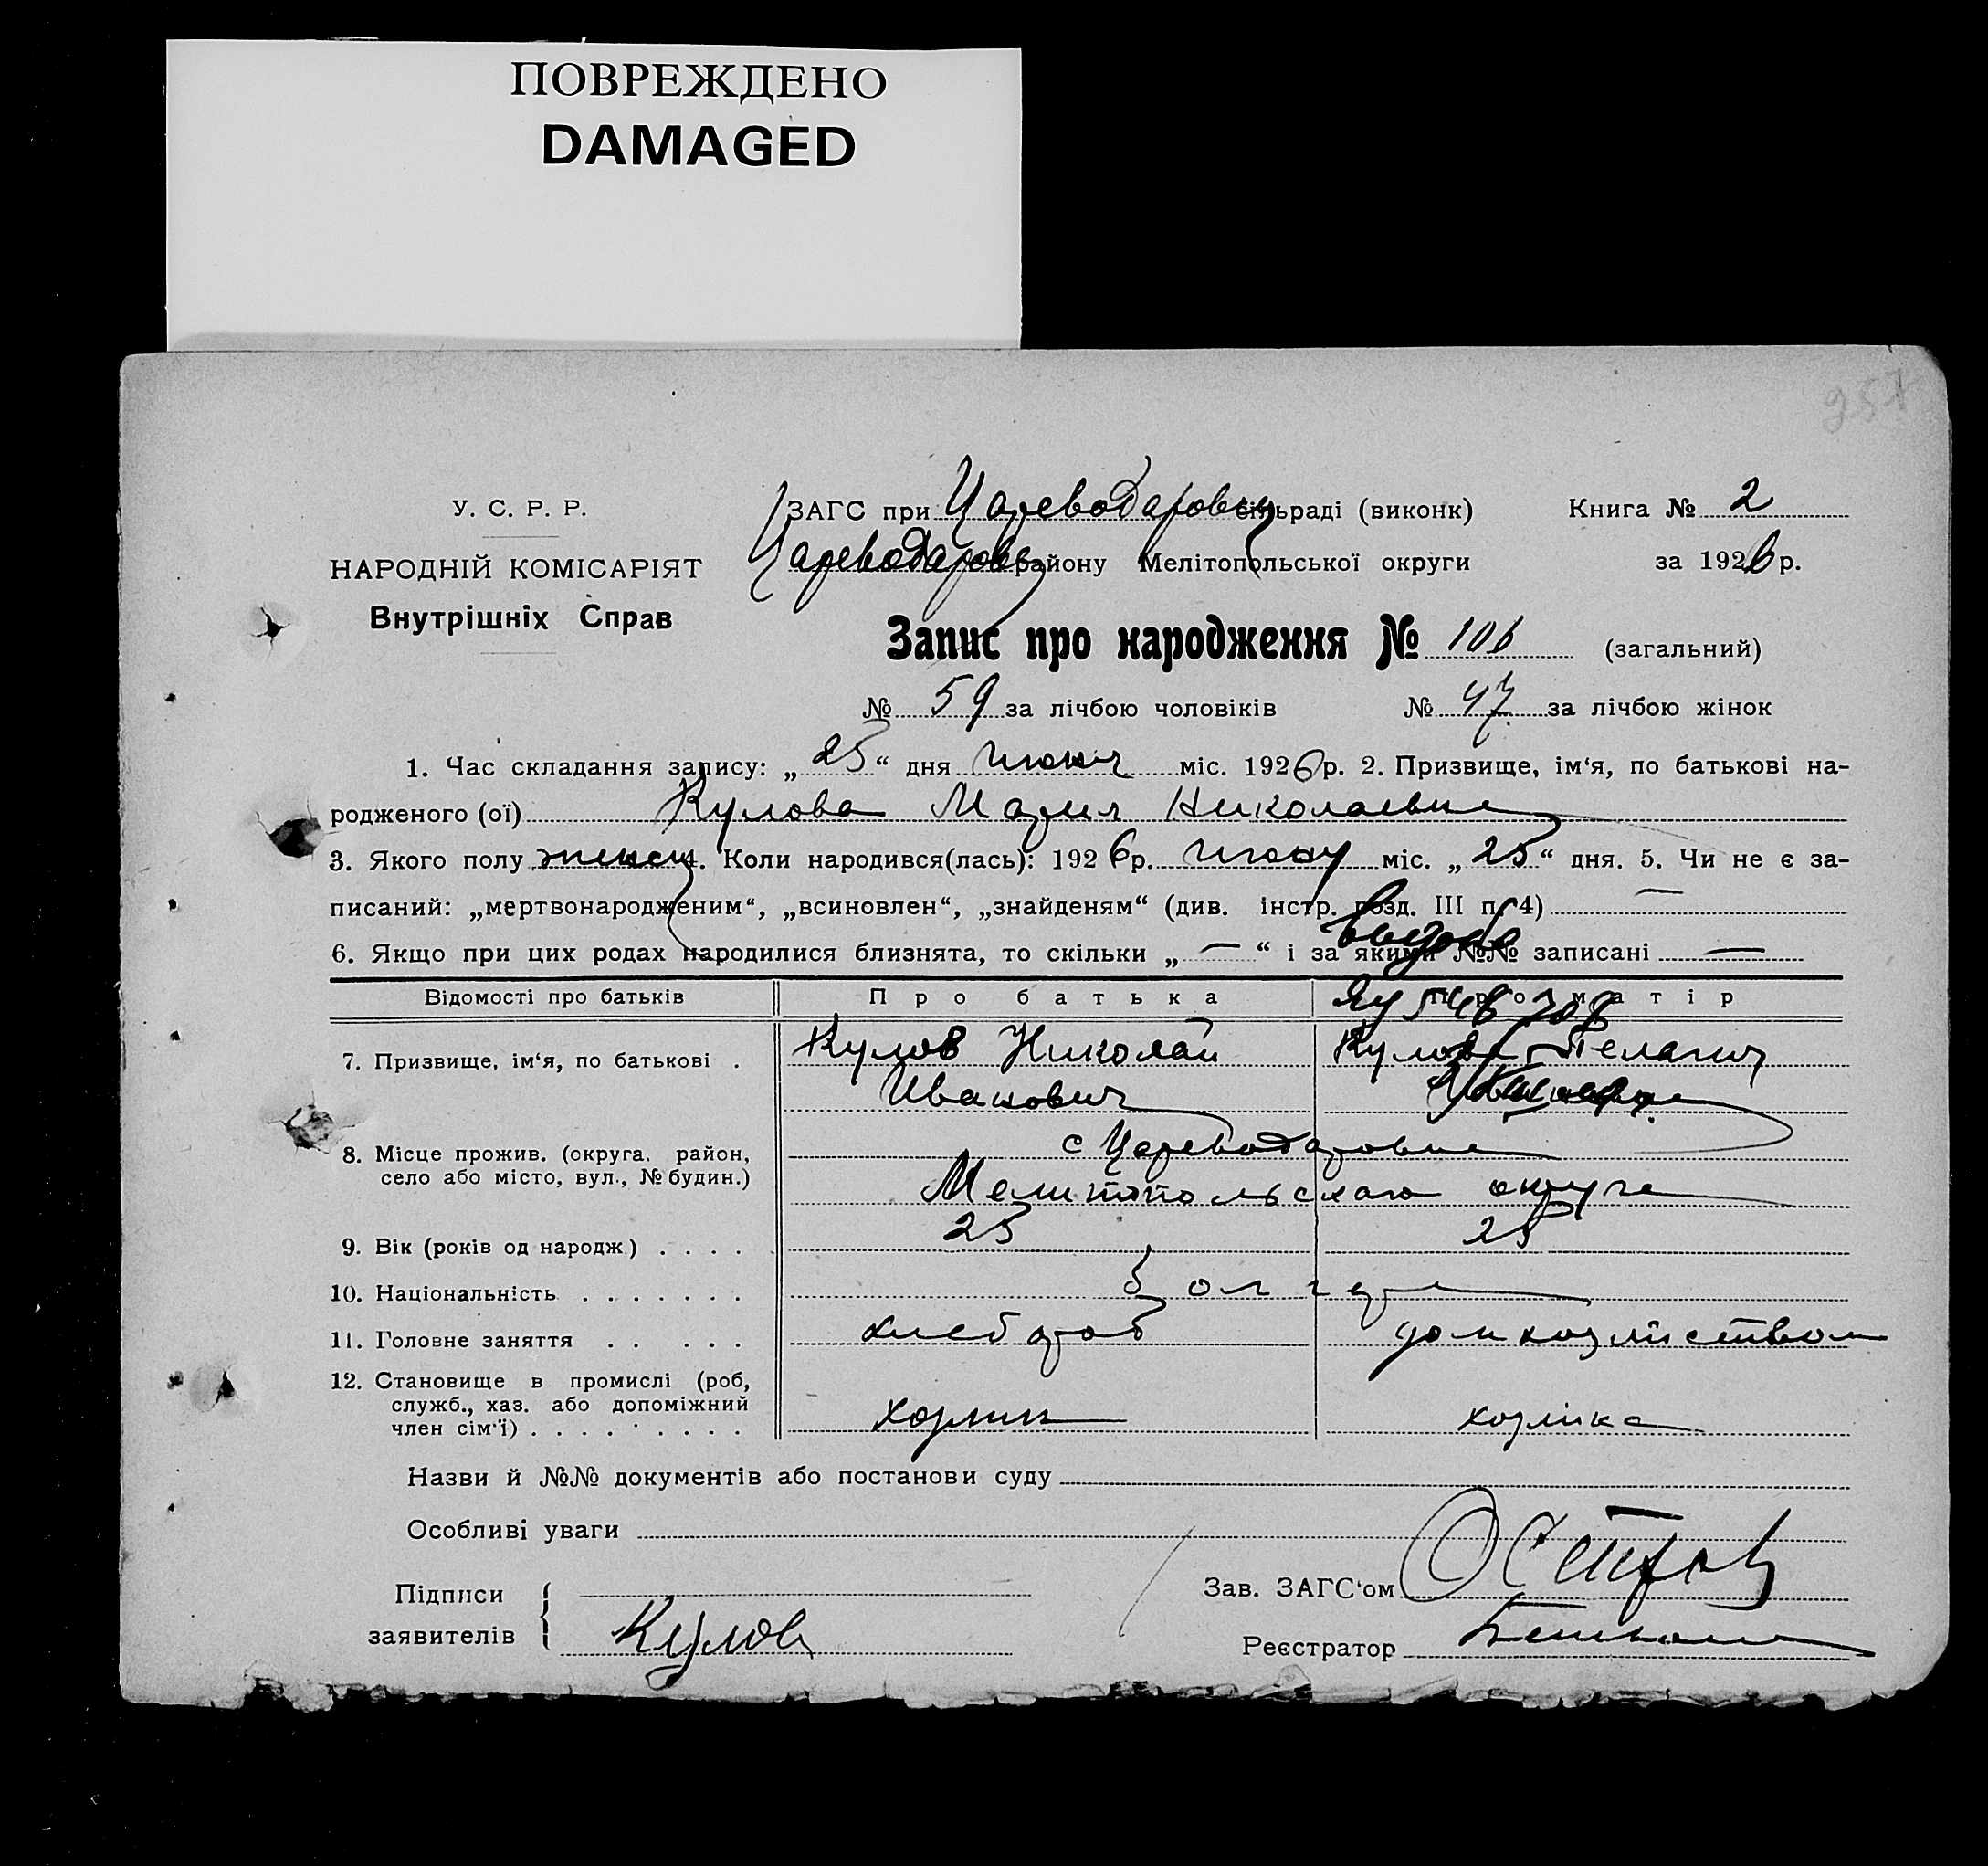 ПОВРЕЖДЕНО
DAMAGED
957
У. С. Р. Р.
НАРОДНІЙ КОМІСАРІЯТ
Внутрішніх Справ
ЗАГС при Цареводаровск сільраді (виконк)
Цареводаровск району Мелітопольської округи
Книга № 2
за 1926 р.
Запис про народження № 106 (загальний)
№ 59 за лічбою чоловіків № 47 за лічбою жінок
1. Час складання запису: „25“ дня июня міс. 1926 р. 2. Призвище, ім‘я, по батькові на-
родженого (ої) Кулова Мария Николаевна
3. Якого полу женск 4. Коли народився(лась): 1926 р. июня міс. „25“ дня. 5. Чи не є за-
писаний: „мертвонародженим“, „всиновлен“, „знайденям“ (див. інстр. розд. III п. 4) —
6. Якщо при цих родах народилися близнята, то скільки „—“ і за якими №№ записані —
Відомості про батьків Про батька Про матір
7. Призвище, ім‘я, по батькові . Кулов Николай Кулова Пелагия
Иванович
8. Місце прожив. (округа, район, с Цареводаровка
село або місто, вул., № будин.) Мелитопольскаго округа
9. Вік (років од народж) . . . . 25 25
10. Національність . . . . . . . болгаре
11. Головне заняття . . . . . хлебороб домхозяйством
12. Становище в промислі (роб,
служб., хаз. або допоміжний хозяин хозяйка
член сім‘ї) . . . . . . . . .
Назви й №№ документів або постанови суду
Особливі уваги
Підписи
заявителів Кулов
Зав. ЗАГС‘ом
Реєстратор